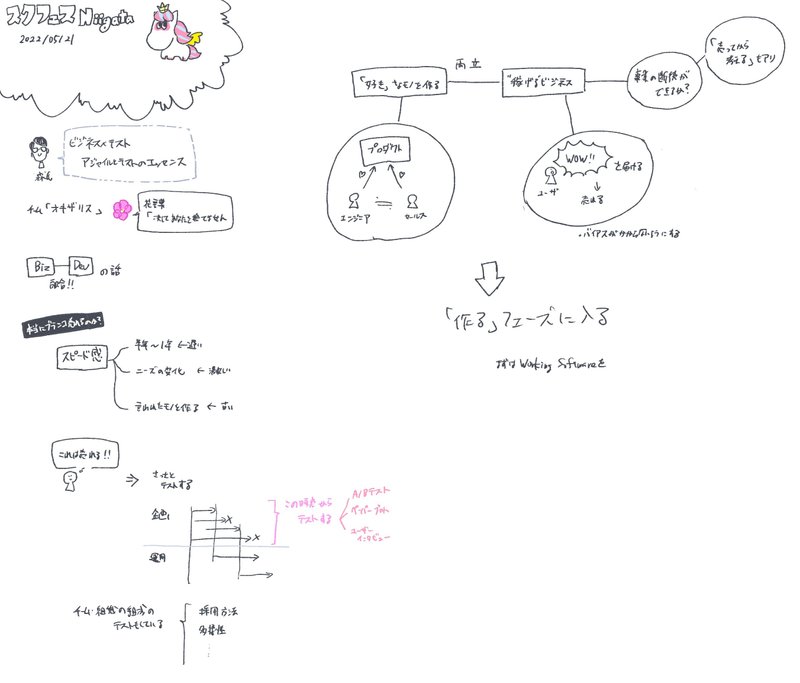 スクフェス Niigata
2022/05/21
ビジネス×テスト
アジャイルとテストのエッセンス
チーム「オキザリス」
花言葉
「決してあなたを捨てません
Biz Dev の話
融合!!
スピード感
半年〜1年 ← 遅い
ニーズの変化 ← 激しい
言われたモノを作る ← 古い
これは売れる!!
⇒ さっさと
テストする
企画
運用
この時点から
テストする
A/Bテスト
ペーパープロト
ユーザー
インタビュー
チーム・組織の
テストもしている
採用方法
多様性
両立
「好き」なモノを作る
"稼げるビジネス
事業の断捨が
できるか?
「売ってから
考える」もアリ
プロダクト
エンジニア
セールス
WOW!! を届ける
ユーザ
売れる
・バイアスがかからないようにする
「作る」フェーズに入る
まずは Working Softwareを